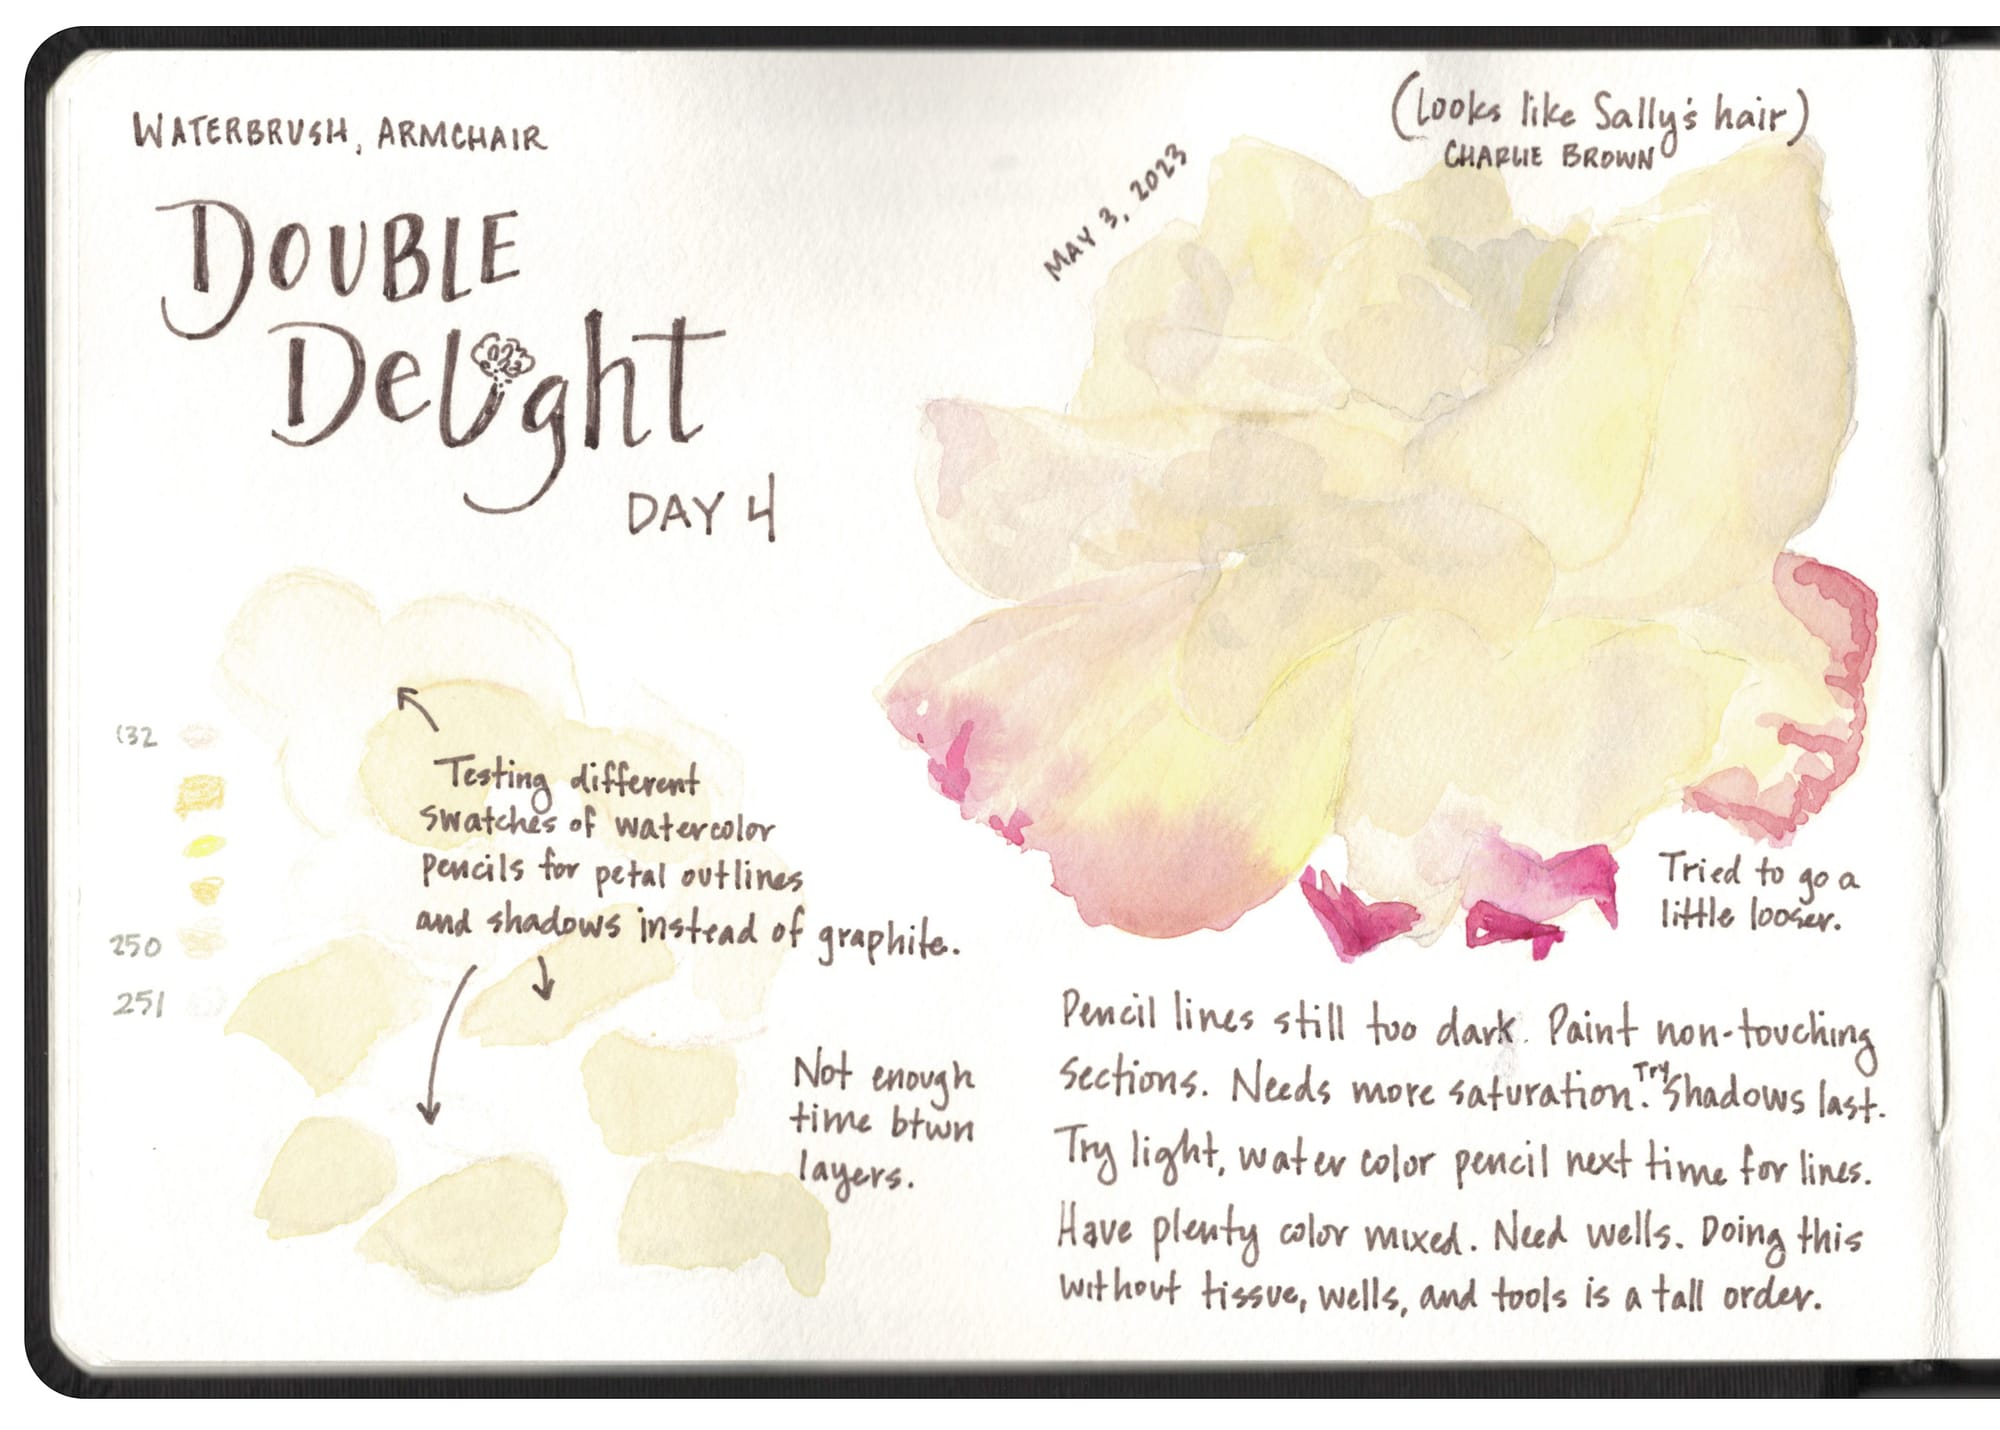 WATERBRUSH, ARMCHAIR
DOUBLE
DeLight
DAY 4
MAY 3, 2023
(Looks like Sally's hair)
CHARLIE BROWN
132
250
251
Testing different
swatches of watercolor
pencils for petal outlines
and shadows instead of graphite.
Not enough
time btwn
layers.
Tried to go a
little looser.
Pencil lines still too dark. Paint non-touching
sections. Needs more saturation. Try Shadows last.
Try light, water color pencil next time for lines.
Have plenty color mixed. Need wells. Doing this
without tissue, wells, and tools is a tall order.